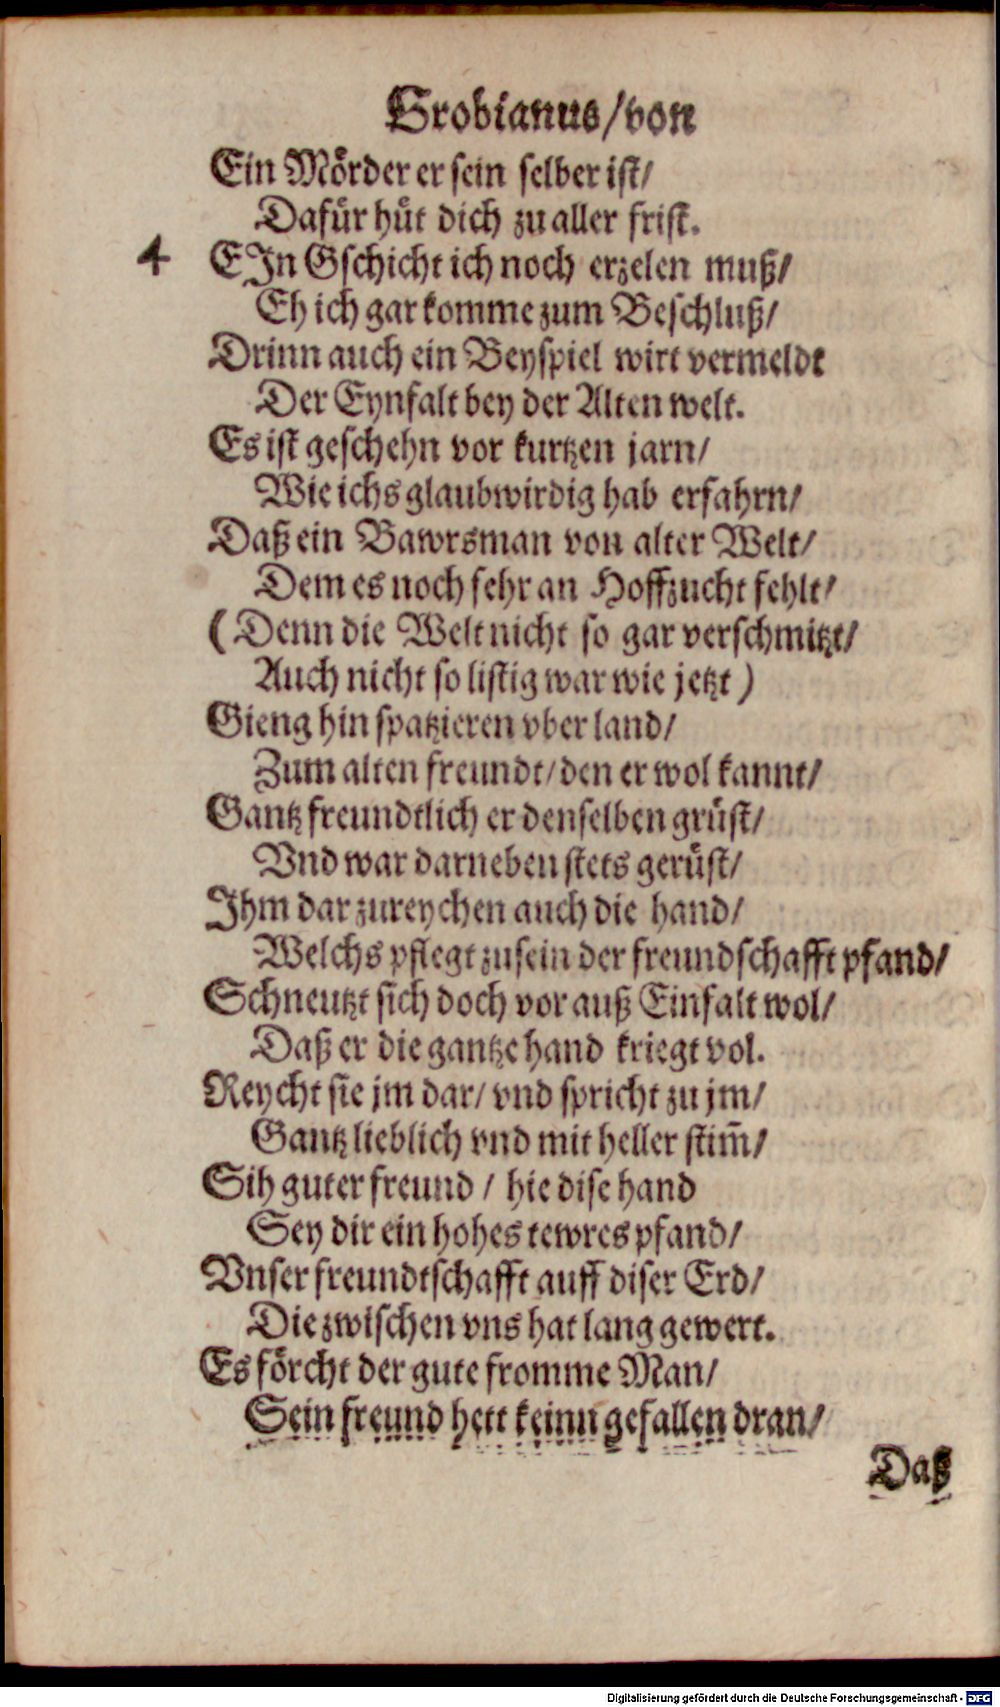 Grobianus/von
Ein Mörder er sein selber ist/
Dafür hüt dich zu aller frist.
4 EJn Gschicht ich noch erzelen muß/
Eh ich gar komme zum Beschluß/
Drinn auch ein Beyspiel wirt vermeldt
Der Eynfalt bey der Alten welt.
Es ist geschehn vor kurtzen jarn/
Wie ichs glaubwirdig hab erfahrn/
Daß ein Bawrsman von alter Welt/
Dem es noch sehr an Hoffzucht fehlt/
(Denn die Welt nicht so gar verschmitzt/
Auch nicht so listig war wie jetzt)
Gieng hin spatzieren vber land/
Zum alten freundt/den er wol kannt/
Gantz freundtlich er denselben grüst/
Vnd war darneben stets gerüst/
Jhm dar zureychen auch die hand/
Welchs pflegt zusein der freundschafft pfand/
Schneutzt sich doch vor auß Einfalt wol/
Daß er die gantze hand kriegt vol.
Reycht sie jm dar/vnd spricht zu jm/
Gantz lieblich vnd mit heller stim̃/
Sih guter freund/hie dise hand
Sey dir ein hohes tewres pfand/
Vnser freundtschafft auff diser Erd/
Die zwischen vns hat lang gewert.
Es förcht der gute fromme Man/
Sein freund hett keinn gefallen dran/
Daß
Digitalisierung gefördert durch die Deutsche Forschungsgemeinschaft - DFG